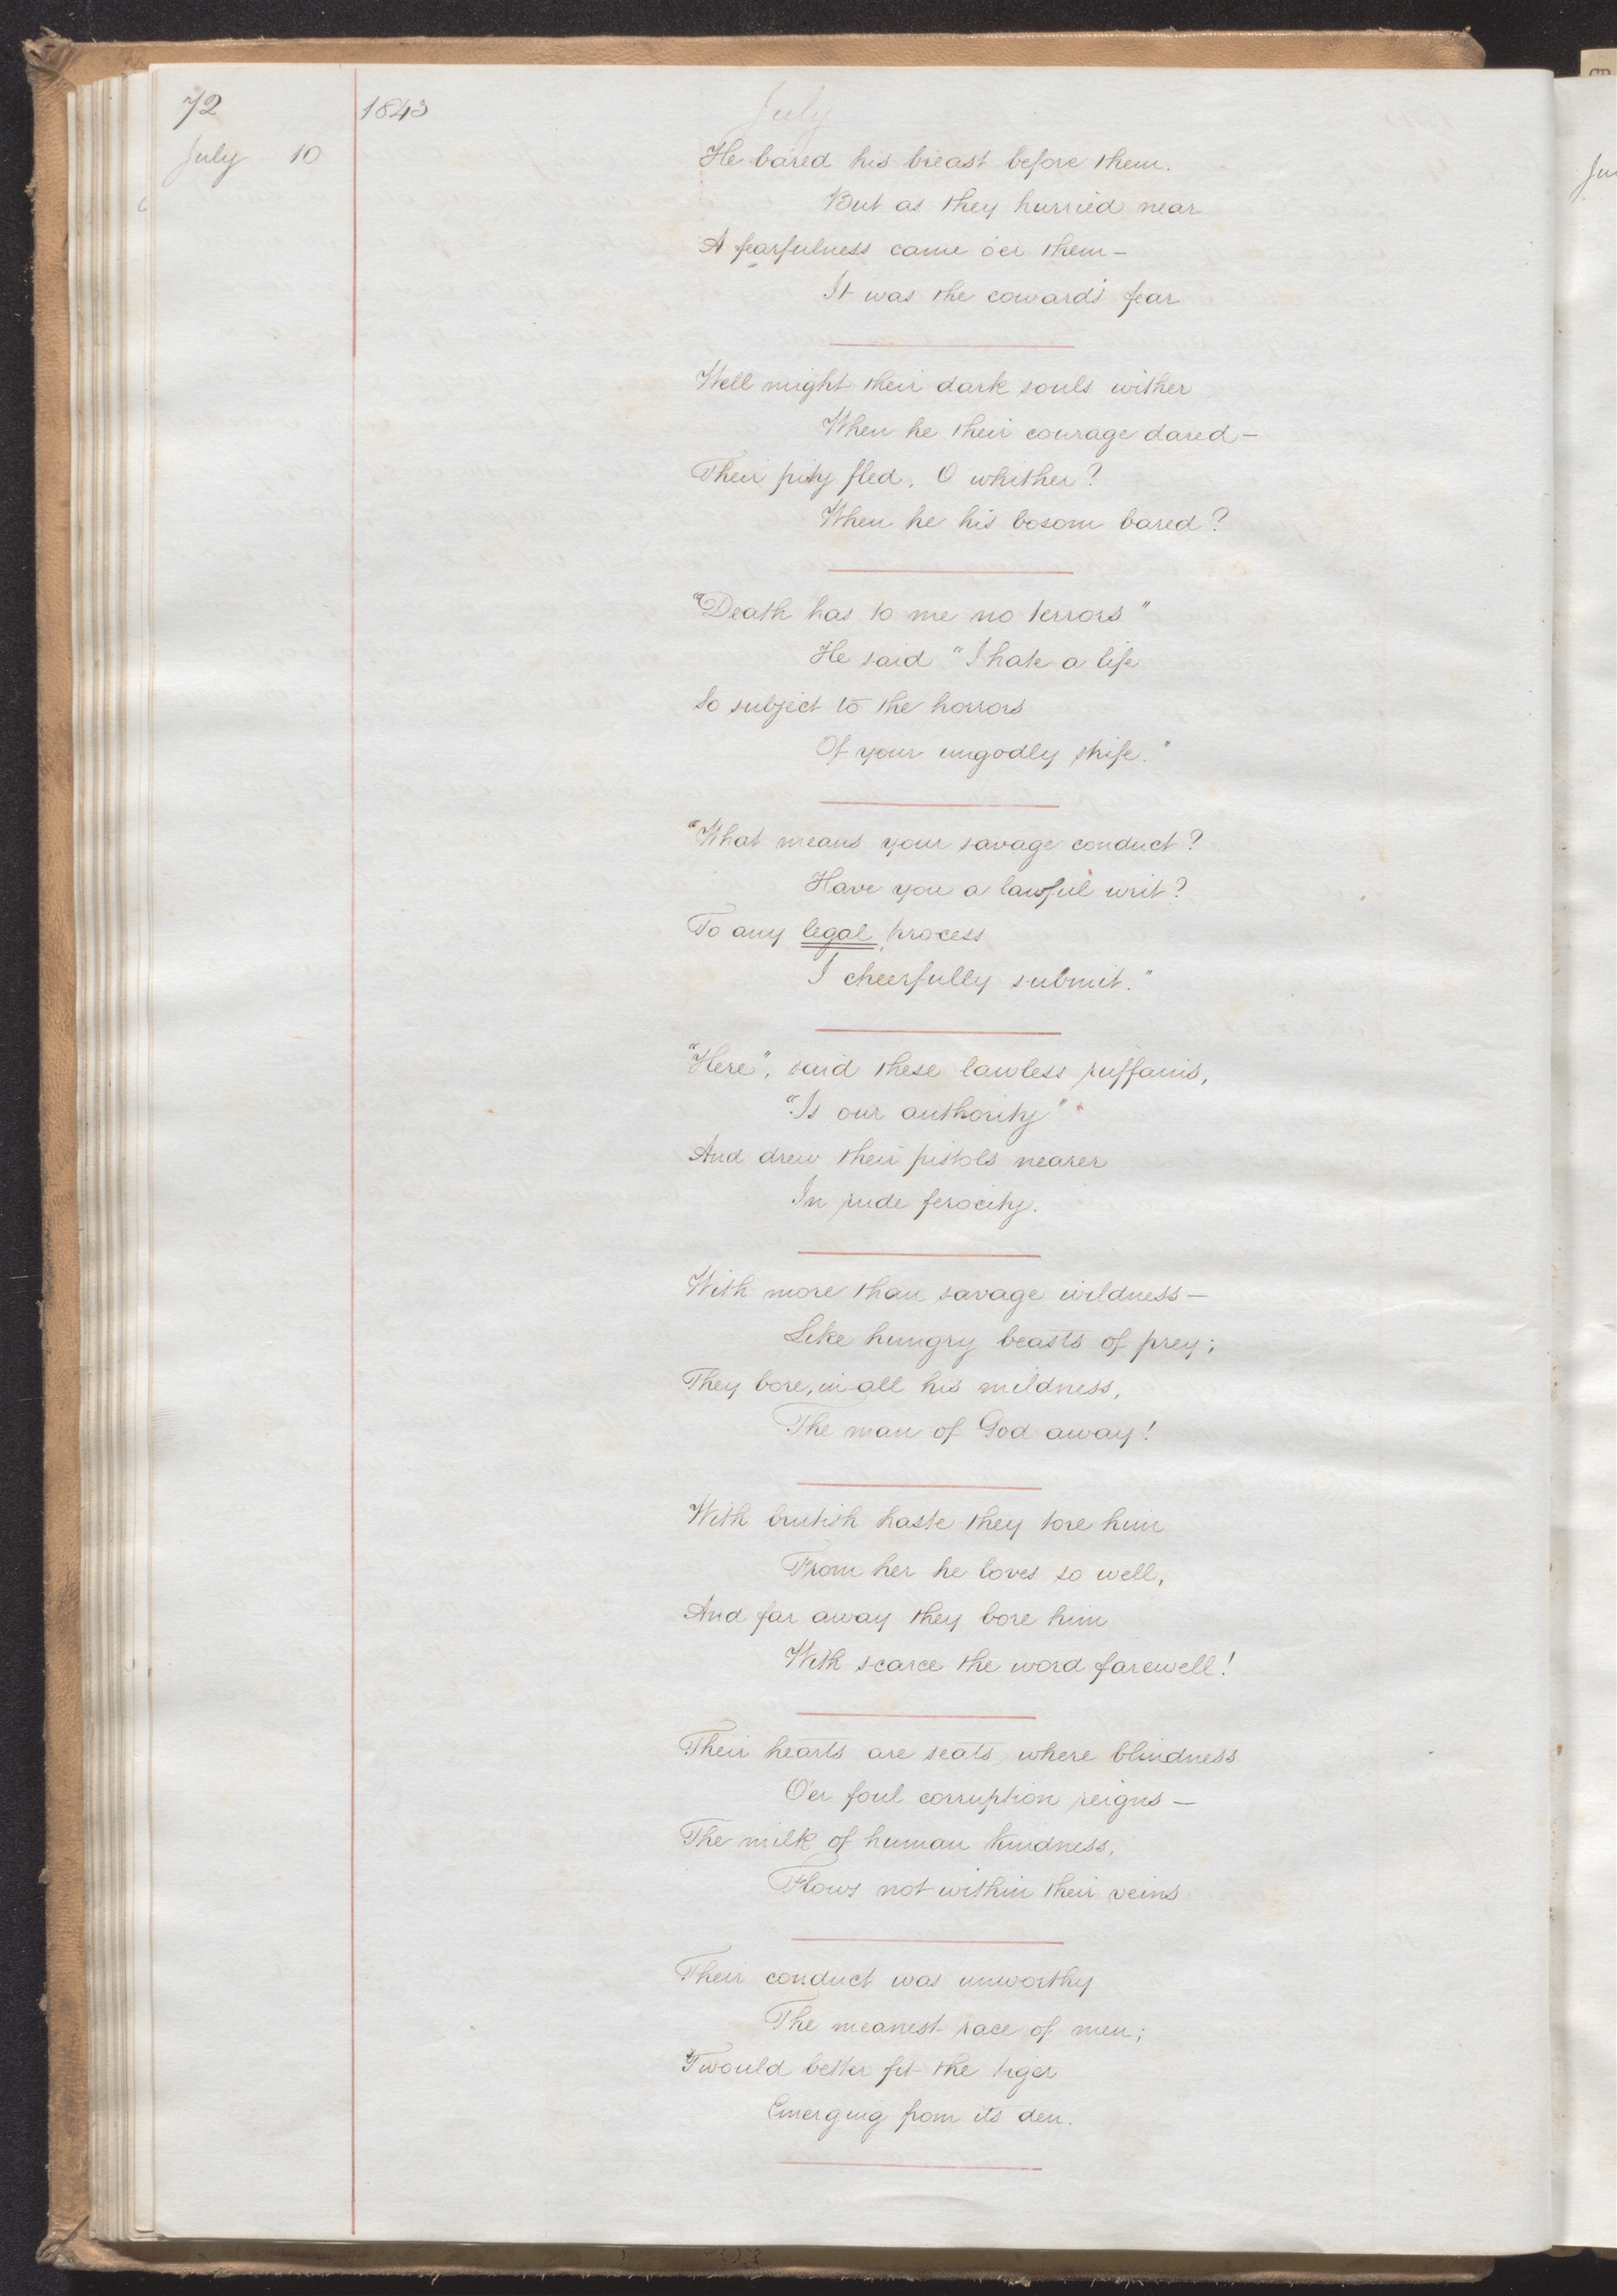 72
1843
July
July 10
He bared his breast before them.
But as they hurried near
A fearfulness came o'er them—
It was the coward's fear
Well might their dark souls wither
When he their courage dared—
Their pity fled, O whither?
When he his bosom bared?
"Death has to me no terrors"
He said "I hate a life
So subject to the horrors
Of your ungodly strife."
"What means your savage conduct?
Have you a lawful writ?
To any legal process
I cheerfully submit."
"Here", said these lawless ruffains,
"Is our authority"
And drew their pistols nearer
In rude ferocity.
With more than savage wildness—
Like hungry beasts of prey;
They bore, in all his mildness,
The man of God away!
With brutish haste they tore him
From her he loves so well,
And far away they bore him
With scarce the word farewell!
Their hearts are seats, where blindness
O'er foul corruption reigns—
The milk of human kindness,
Flows not within their veins
Their conduct was unworthy
The meanest race of men;
'Twould better fit the tiger
Emerging from its den.